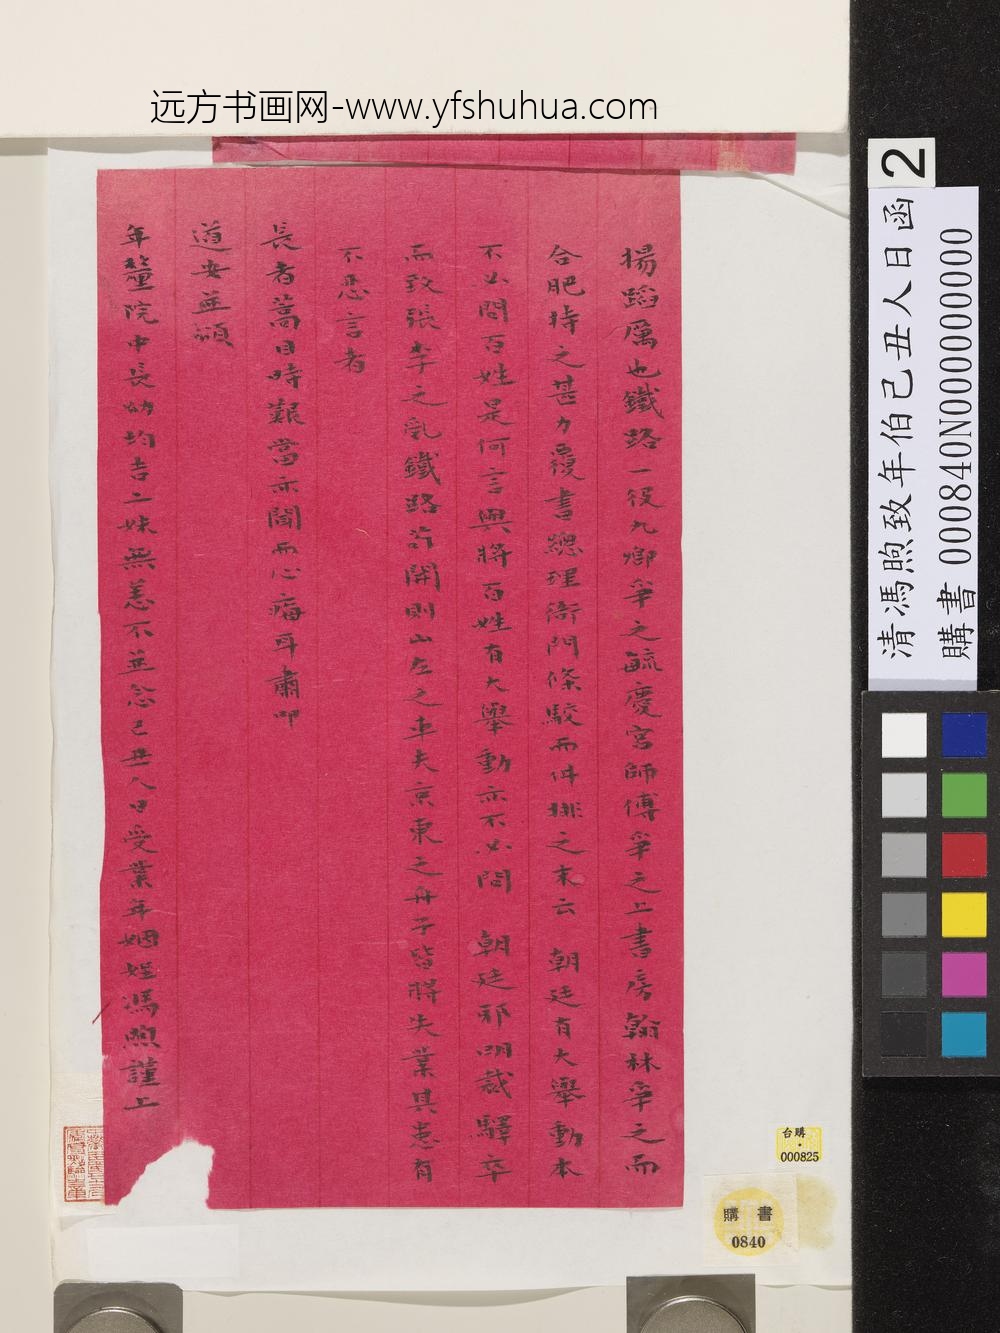 远方书画网-www.yfshuhua.com
揚蹈厲也鐵路一役九卿爭之毓慶宮師傅爭之上書房翰林爭之而
合肥持之甚力覆書總理衙門條駮而件排之末云 朝廷有大舉動本
不必問百姓是何言與將百姓有大舉動亦不必問 朝廷邪明裁驛卒
而致張李之亂鐵路許開則山左之車夫京東之舟子皆將失業其患有
不悉言者
長者蒿目時艱當亦聞而心痛耳肅叩
道安並頌
年釐院中長幼均吉二妹無恙不並念己丑人日受業年姻姪馮煦謹上
清馮煦致年伯己丑人日函
購書 000840N000000000
2
台購
000825
購書
0840